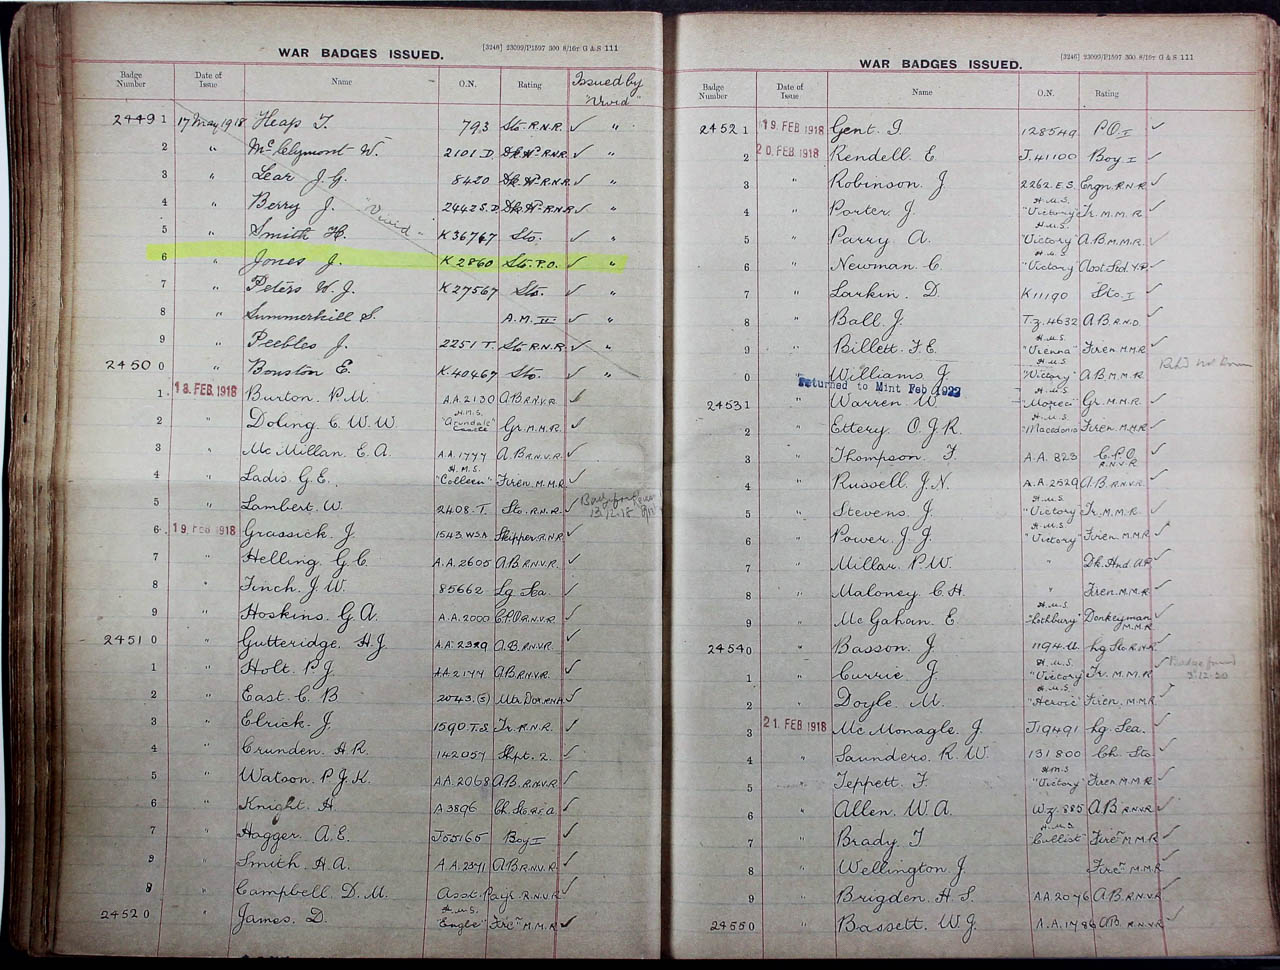 WAR BADGES ISSUED. [3246] 23099/P1597 300 8/16T G & S 111
Badge Number Date of Issue Name O.N. Rating Issued by "Vivid"
24491 17 May 1918 Heap T. 793 Sto. R.N.R. ✓ "
2 " McClymont W. 2101.D Dk. Hd. R.N.R. ✓ "
3 " Lear J.G. 8420 Dk. Hd. R.N.R. ✓ "
4 " Berry J. 2442S.D Dk. Hd. R.N.R. ✓ "
"Vivid"
5 " Smith H. K36767 Sto. ✓ "
6 " Jones J. K2860 Sto. P.O. ✓ "
7 " Peters W.J. K27567 Sto. ✓ "
8 " Summerhill S. A.M. II ✓ "
9 " Peebles J. 2251 T. Sto. R.N.R. ✓ "
24500 " Bouston E. K.40467 Sto. ✓ "
1. 18. FEB. 1918 Burton. P.M. A.A. 2130 A.B. R.N.V.R. ✓
2 " Doling. C.W.W. H.M.S. "Arundale Castle" Gr. M.M.R. ✓
3 " McMillan. E.A. A.A. 1777 A.B. R.N.V.R. ✓
4 " Ladis. G.E. H.M.S. "Colleen" Firen. M.M.R. ✓
5 " Lambert. W. 2408. T. Sto. R.N.R. ✓
6. 19. FEB 1918 Grassick. J. 1543 W.S.A Skipper. R.N.R. ✓
7 " Helling. G.C. A.A. 2605 A.B. R.N.V.R. ✓
8 " Finch. J.W. 85662 Lg. Sea. ✓
9 " Hoskins. G.A. A.A. 2000 C.P.O. R.N.V.R. ✓
24510 " Gutteridge. H.J. A.A. 2329 A.B. R.N.V.R. ✓
1 " Holt. P.J. A.A. 2177 A.B. R.N.V.R. ✓
2 " East. C.B. 2043.(S)
3 " Elrick. J. 1590 T.S. Tr. R.N.R. ✓
4 " Crunden. H.R. 142057 Shpt. 2. ✓
5 " Watson. P.J.K. A.A. 2068 A.B. R.N.V.R. ✓
6 " Knight. H. A.3896 ✓
7 " Hagger. A.E. J55165 Boy I ✓
8 " Smith. H.A. A.A. 2371 A.B. R.N.V.R. ✓
9 " Campbell. D.M. Asst. Payr. R.N.V.R. ✓
24520 " James. D. H.M.S. "Eagle" Fire<sup>n</sup> M.M.R. ✓
WAR BADGES ISSUED. [3246] 23099/P1597 300. 8/16T G & S 111
Badge Number Date of Issue Name O.N. Rating
24521 19. FEB 1918 Gent. I. 128549 P.O. I ✓
2 20. FEB 1918 Rendell. E. J.41100 Boy. I ✓
3 " Robinson. J. 2262. E.S. Engn. R.N.R. ✓
4 " Porter. J. H.M.S. "Victory" Tr. M.M.R. ✓
5 " Parry. A. H.M.S. "Victory" A.B. M.M.R. ✓
6 " Newman. C. H.M.S. "Victory" ✓
7 " Larkin. D. K11190 Sto. I ✓
8 " Ball. J. T.z. 4632 A.B. R.N.D. ✓
9 " Billett. F.E. H.M.S. "Vienna" Firen. M.M.R. ✓
0 " Williams. J. H.M.S. "Victory" A.B. M.M.R. ✓
Returned to Mint Feb 1922
24531 Warren. W. H.M.S. Gr. M.M.R. ✓
2 " Ettery. O.J.R. H.M.S. "Macedonia" Firen. M.M.R. ✓
3 " Thompson. F. A.A. 823 C.P.O. R.N.V.R. ✓
4 " Russell. J.N. A.A. 2529 A.B. R.N.V.R. ✓
5 " Stevens. J. H.M.S. "Victory" Tr. M.M.R. ✓
6 " Power. J.J. H.M.S. "Victory" Firen. M.M.R. ✓
7 " Millar. P.W. " Dk. Hnd. ✓
8 " Maloney. C.H. " Firen. M.M.R. ✓
9 " McGahan. E. H.M.S. Donkeyman M.M.R. ✓
24540 " Basson. J. 1194.U. Lg. Sto. R.N.R. ✓
1 " Currie. J. H.M.S. "Victory" Tr. M.M.R. ✓ Badge found
2 " Doyle. M. H.M.S. "Heroic" Firen. M.M.R. ✓
3 21. FEB 1918 McMonagle. J. J19491 Lg. Sea. ✓
4 " Saunders. R.W. 131800 Ch. Sto. ✓
5 " Teppett. F. H.M.S. "Victory" Firen. M.M.R. ✓
6 " Allen. W.A. W.z. 885 A.B. R.N.V.R. ✓
7 " Brady. T H.M.S. "Cullist" Fire<sup>n</sup> M.M.R. ✓
8 " Wellington. J. Fire<sup>n</sup> M.M.R. ✓
9 " Brigden. H.S. AA 2076 A.B. R.N.V.R. ✓
24550 " Bassett. W.J. A.A. 1786 A.B. R.N.V.R. ✓